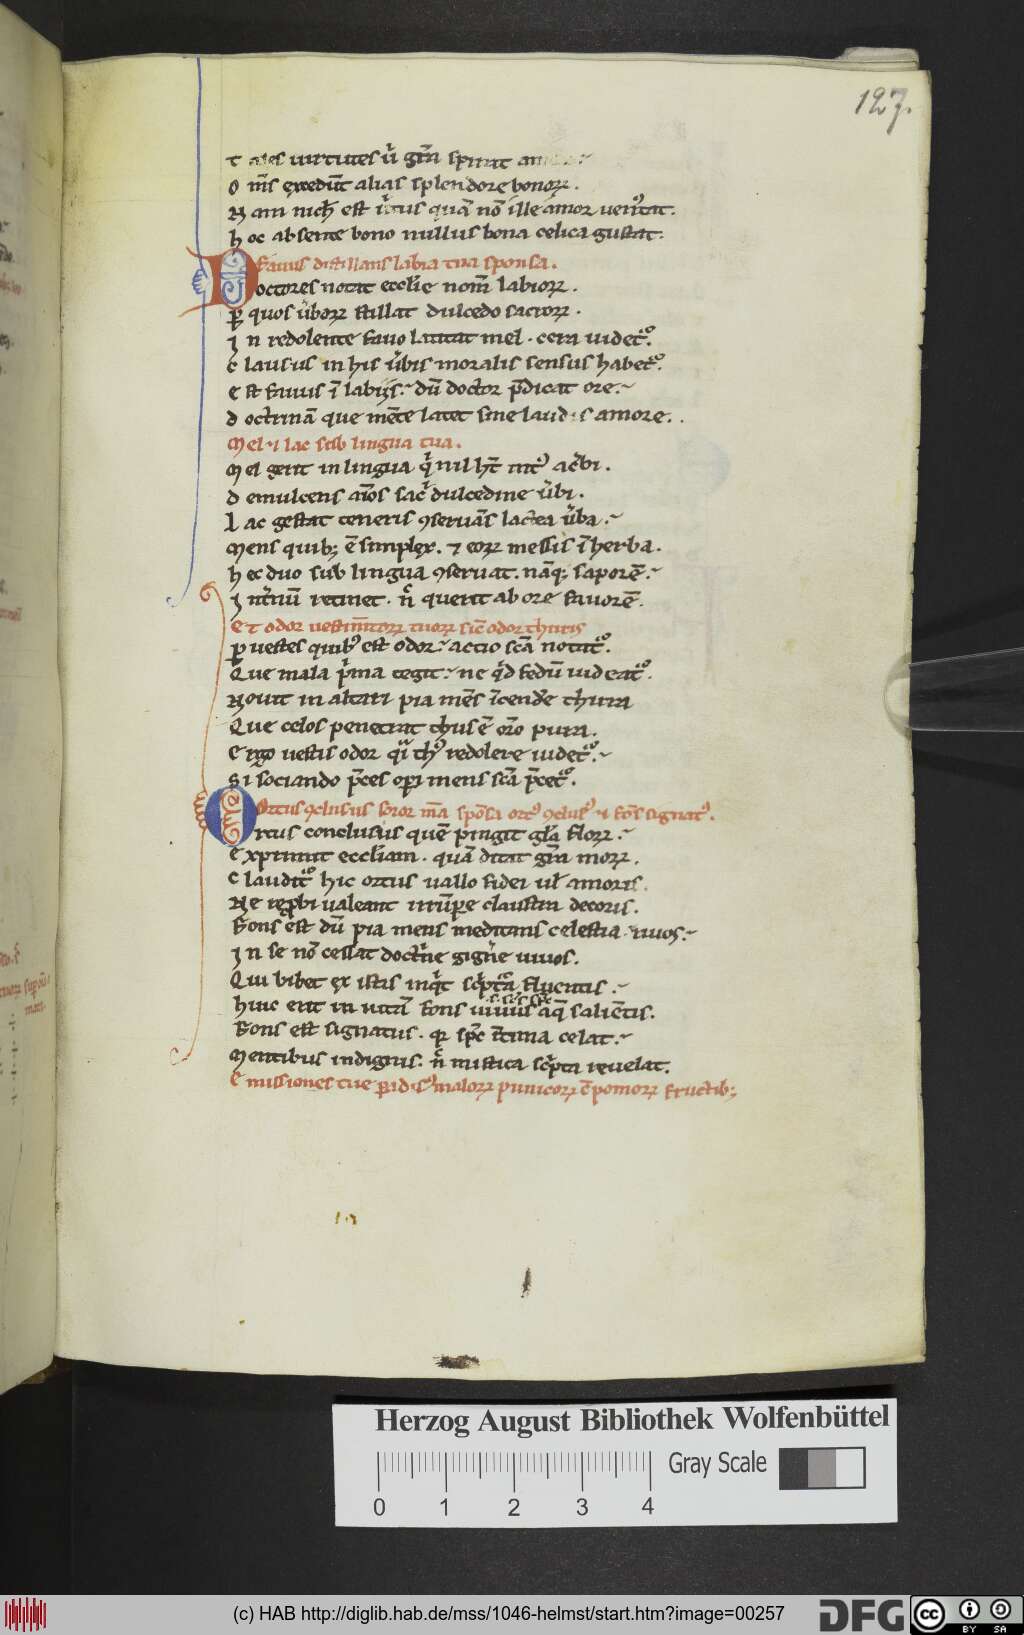 127.
Tales uirtutes ũ gr̄m spirat
Om̄s exced̄ut alias splendore bonoꝝ.
Nam nich̄ est uͥtus quā nō ille amor uenͥstat.
hoc absente bono nullus bona celica gustat.
Fauus distillans labia tua sponsa.
Doctores notat eccl̄ie nom̄ labioꝝ.
ꝑ quos ũboꝝ stillat dulcedo sacroꝝ.
In redolente fauo latitat mel. cera uidet᷑.
Clausus in his ũbis moralis sensus habet᷑.
Est fauus ī labijs. dū doctor p̄dicat ore.
doctrinā que m̄te latet sine laudis amore.
Mel ⁊ lac sub lingua tua.
Mel gerit in lingua qͥ nil h̄t int᷑ ac̄bi.
demulcens aīos sacͣ dulcedine ũbi.
Lac gestat teneris ꝯseruās lactea ũba.
Mens quib; ē simplex. ⁊ eoꝝ messis ī herba.
hec duo sub lingua ꝯseruat. nāq; saporē.
Int̄nū retinet. n̄ querit ab ore fauorē.
Et odor uestim̄toꝝ tuoꝝ sic̄ odor thuris
ꝑ uestes quibꝰ est odor. actio sc̄a notat᷑.
Que mala pͥma tegit. ne qͥd fedū uideat᷑.
Nouit in altari pia m̄es īcende thura
Que celos penetrat thus ē or̄o pura.
Ergo uestis odor qͣi thꝰ redolere uidet᷑.
Si sociando p̄ces oꝑi mens sc̄a p̄cet᷑.
Ortus ꝯclusus soror m̄a spōsa ortꝰ ꝯclusꝰ ⁊ fōs signatꝰ.
Ortus conclusus quē pingit gl̄a floꝝ.
Exprimit eccl̄iam. quā ditat gr̄m moꝝ.
Claudit᷑ hic ortus uallo fidei ul̄ amoris.
Ne reꝓbi ualeant irrūpe claustra decoris.
Fons est dū pia mens meditans celestia riuos.
In se nō cessat doctͥne gignͥe uiuos.
Qui bibet ex istis inqͥt scͥpt̄a fluentis.
.i. sc̄s sp̄c
huic erit in uitā fons uiuus aq̄ saliētis.
Fons est signatus. qꝛ sp̄c int̄ima celat.
Mentibus indignis. n̄ mistica scͥpta reuelat.
Emissiones tue ꝑadisꝰ maloꝝ punicoꝝ c̄ pomoꝝ fructib;
Herzog August Bibliothek Wolfenbüttel
0 1 2 3 4
Gray Scale
(c) HAB http://diglib.hab.de/mss/1046-helmst/start.htm?image=00257
DFG
cc BY SA